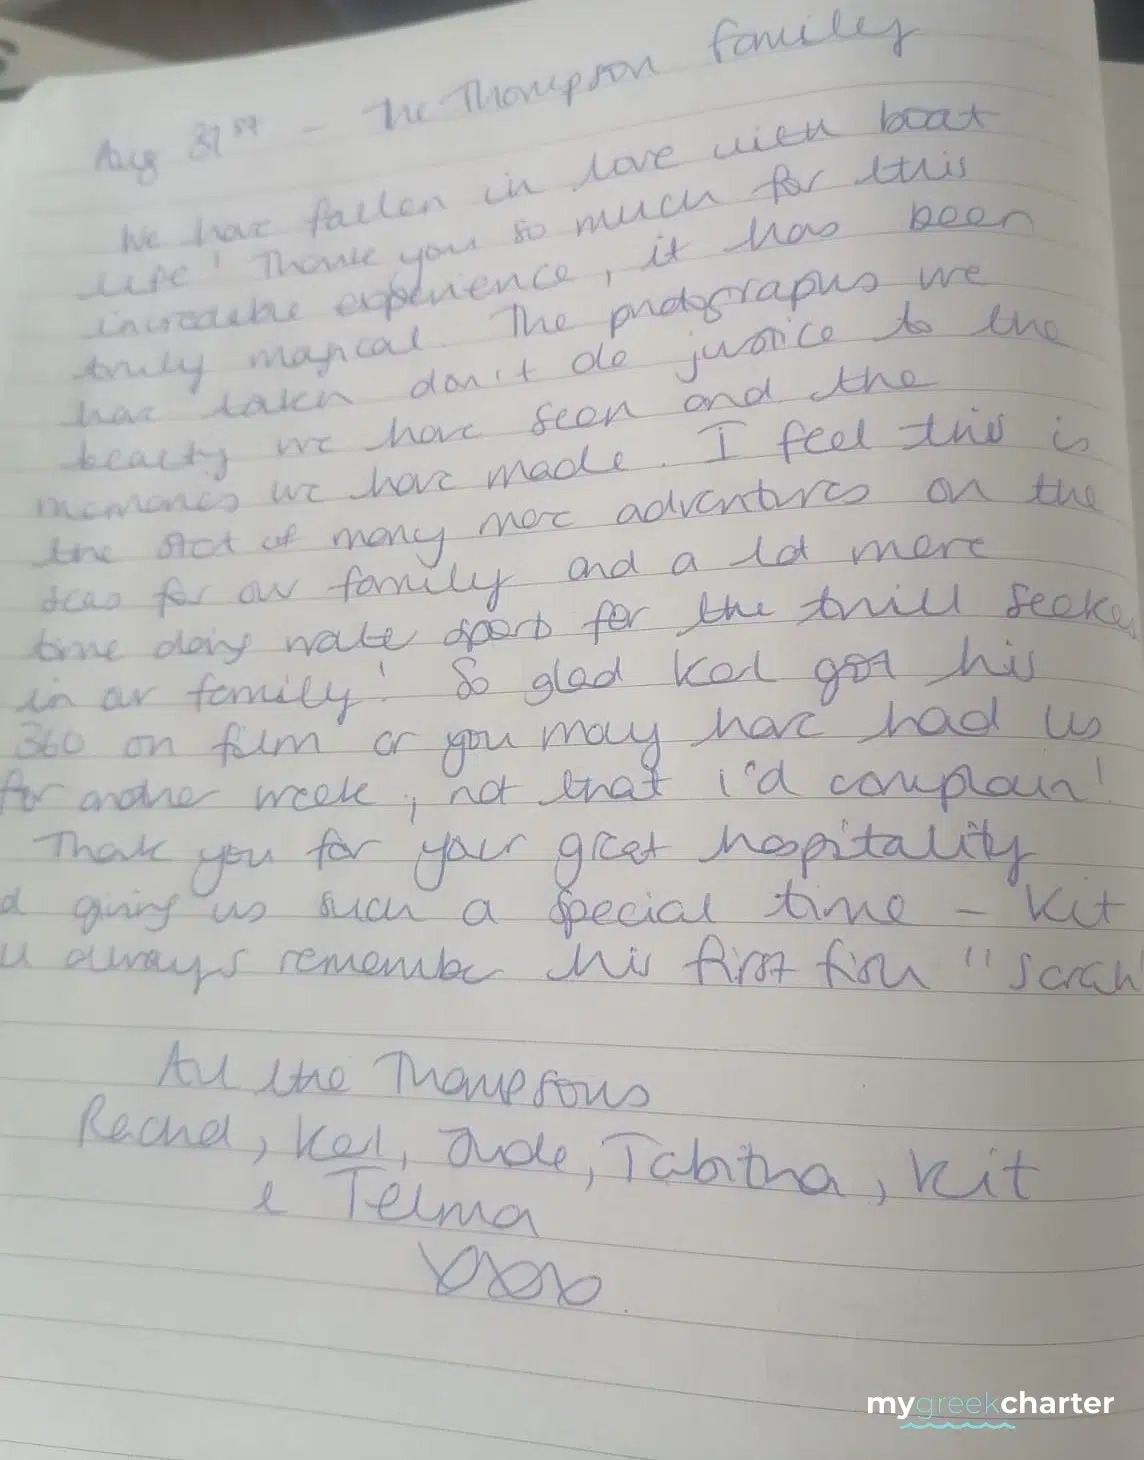 Aug 31st - The Thompson family
We have fallen in love with boat
life! Thank you so much for this
incredible experience, it has been
truly magical. The photographs we
have taken don't do justice to the
beauty we have seen and the
memories we have made. I feel this is
the start of many more adventures on the
seas for our family and a lot more
time doing water sports for the thrill seeke
in our family! So glad Kel got his
360 on film or you may have had us
for another week, not that i'd complain!
Thank you for your great hospitality
d giving us such a special time - Kit
ll always remember his first fish "Sarah
All the Thompsons
Rachel, Kel, Jude, Tabitha, Kit
& Telma
mygreekcharter